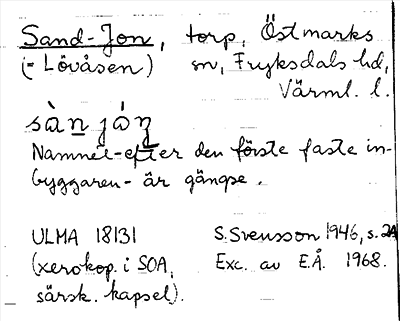 Sand-Jon, torp, Östmarks
(= Lövåsen) sn, Fryksdals hd,
Värml. l.
sàn jón
Namnet - efter den förste faste in-
byggaren - är gängse.
ULMA 18131 S. Svensson 1946, s. 24
(xerokop. i SOA, Exc. av E.Å. 1968.
särsk. kapsel).